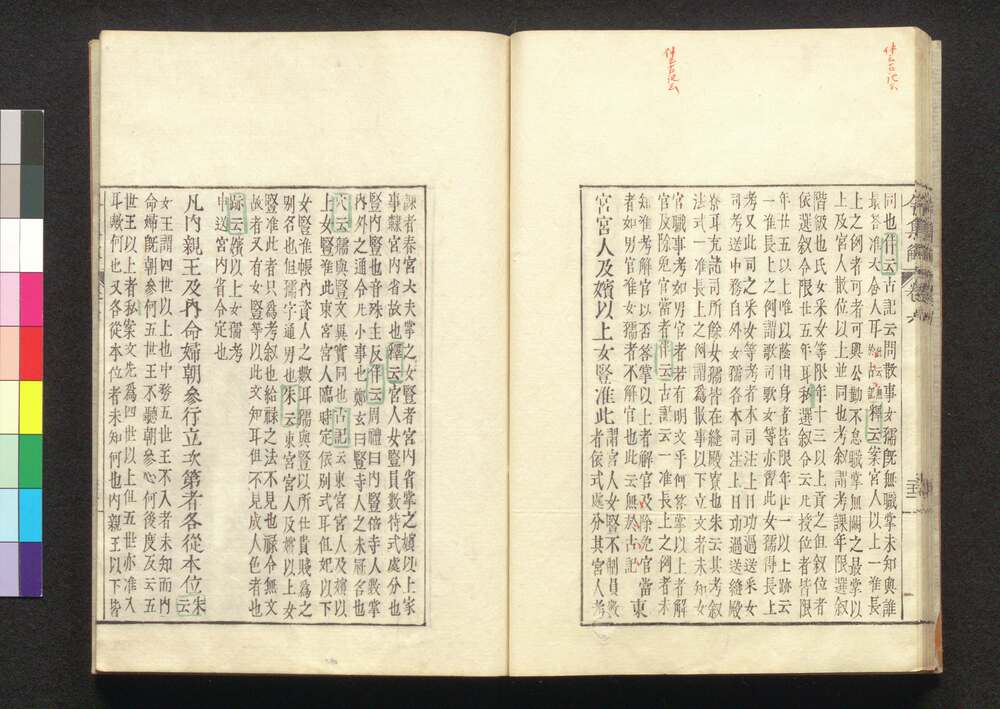 同也伴云古記云問散事女孺既無職掌未知與誰
最答准大舍人耳 釋云案宮人以上一准長
上之例者可者可與公勤不怠職掌無闕之最掌以
上及宮人散位以上並同也考敘謂考課年限選敘
階級也氏女采女等限年十三以上貢之但敘位者
依選敘令限廿五年耳私選敘令云凡授位者皆限
年廿五以上唯以蔭出身者皆限年廿一以上跡云
一准長上之例謂歌司歌女等亦習此女孺得長上
考又此司之采女等考者本司注上日功過送采女
司考送中務自外女孺各本司注上日功過送縫殿
寮耳充諸司所餘女孺皆在縫殿寮也朱云其考敘
法式一准長上之例謂爲散事以下立文者未知女
官職事考如男官者若有明文乎何答掌以上者解
知准考解官以否答掌以上者解官及除免官當
官及除免官當者伴云古記云一准長上之例者未
者如男官准女孺者不解官也此云無於古記 東
宮宮人及嬪以上女豎准此 謂宮人女豎不制員數者依式處分其宮人考
課者春宮大夫掌之女豎者宮內省掌之嬪以上家
事隸宮內省故也釋云宮人女豎員數待式處分也
豎內豎也音殊主反伴云周禮曰內豎倍寺人數掌
內外之通令凡小事也鄭玄曰豎寺人之未冠名也
穴云孺與豎文異實同也古記云東宮宮人及嬪以
上女豎准此東宮宮人臨時定依別式耳但妃以下
女豎准帳內資人之數耳孺與豎以所仕貴賤爲之
別名也但孺字通男也朱云東宮宮人及嬪以上女
豎准此者只爲考敘也給祿之法不見也祿令無文
故者又有女豎等以此文知耳但不見成人色者也
跡云嬪以上女孺考
中送宮內省令定也
凡內親王及內命婦朝參行立次第者各從本位 朱云
女王謂四世以上也中務五世王不入者未知而內
命婦既朝參何五世王不聽朝參心何後度反云五
世王以上者私案文先爲四世以上但五世亦准入
耳歟何也又各從本位者未知何也內親王以下皆